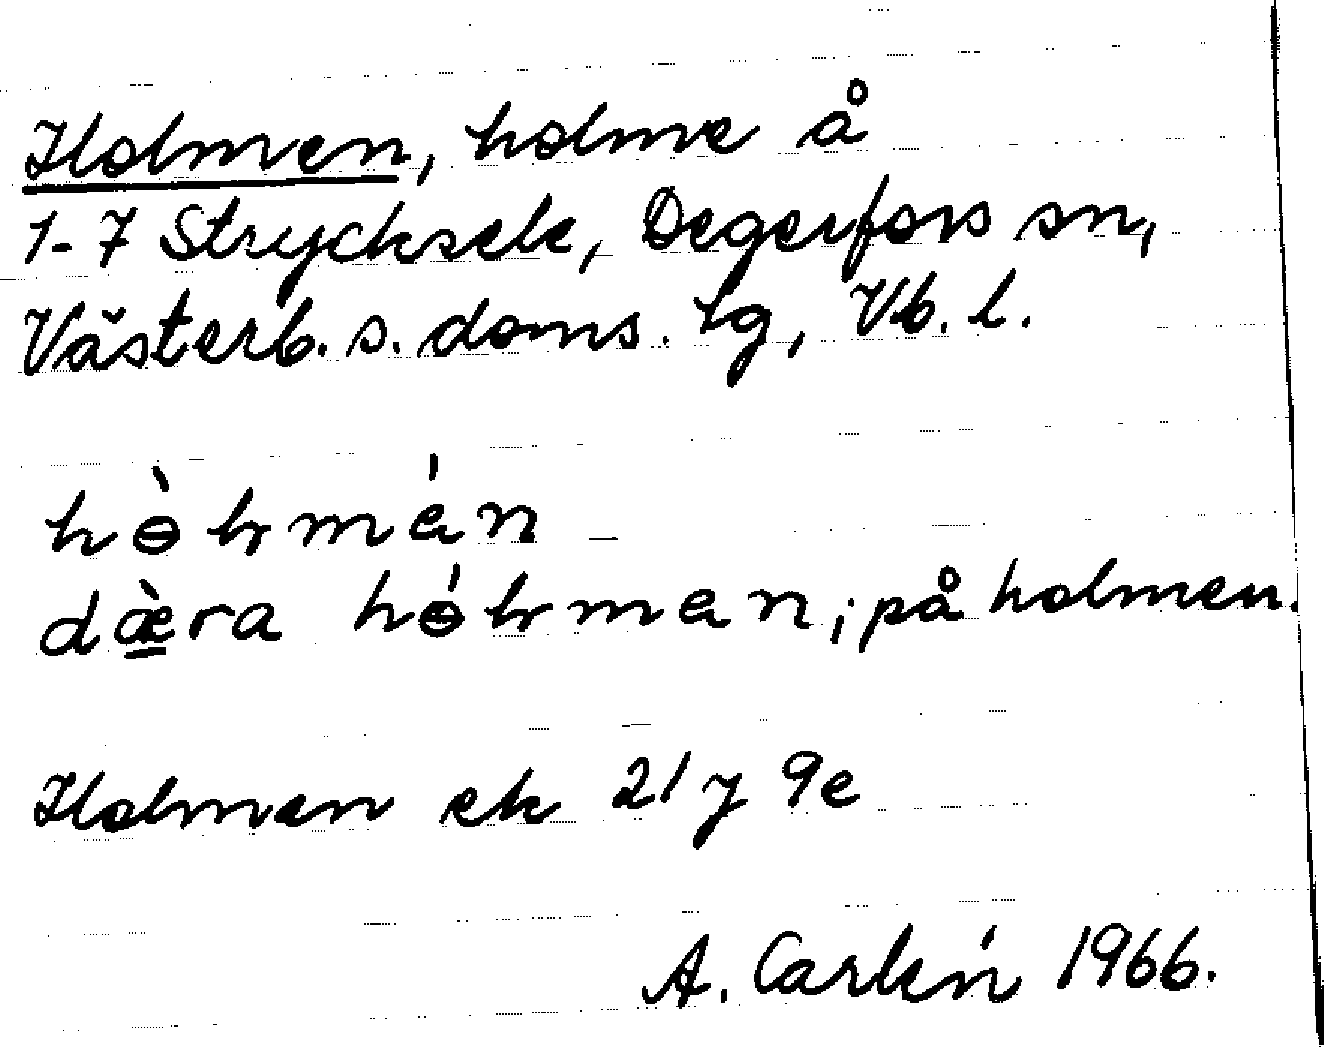 Holmen, holme å
1-7 Strycksele, Degerfors sn,
Västerb. s. doms. lg, Vb. l.
hɵ̀lmén
dæ̀ra hɵ́lmen, på holmen.
Holmen ek 21 J 9e
A. Carlén 1966.